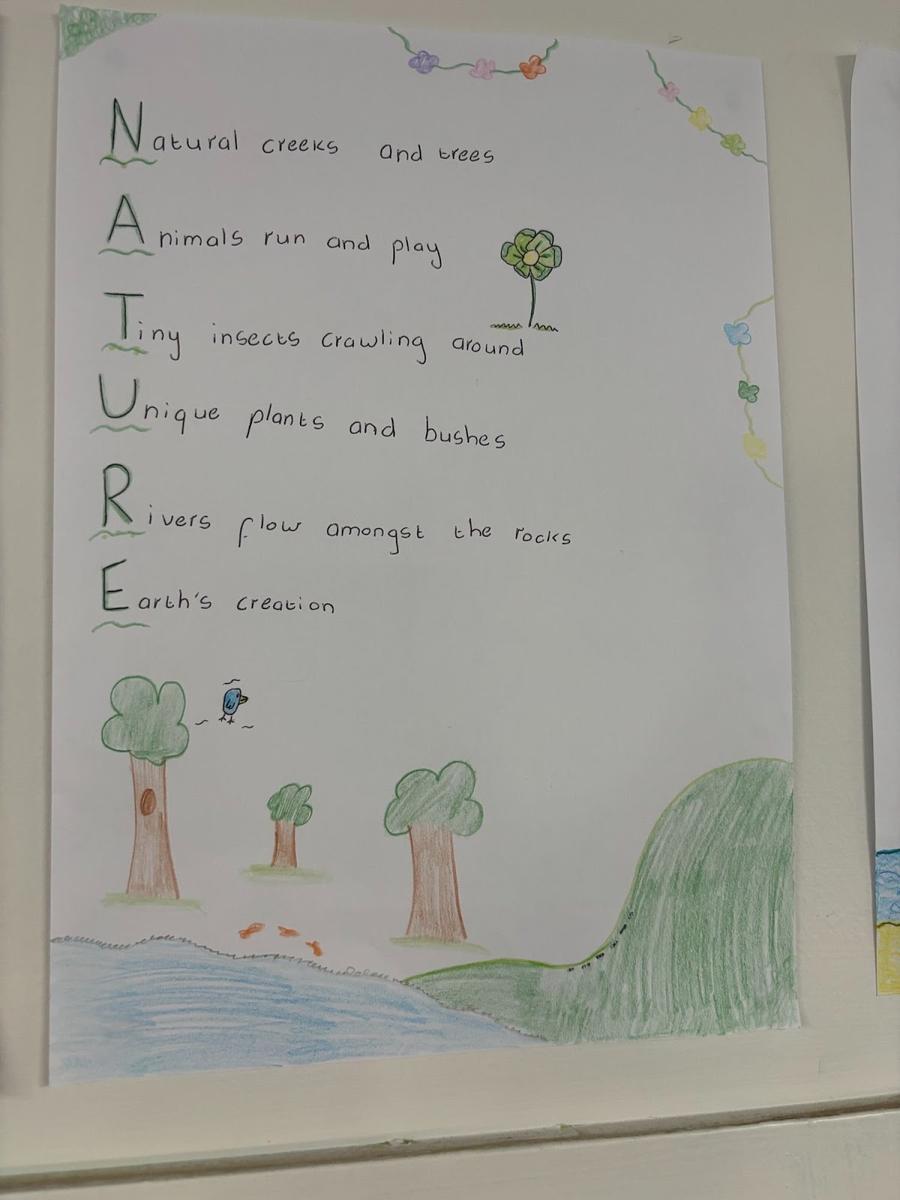 Natural creeks and trees
Animals run and play
Tiny insects crawling around
Unique plants and bushes
Rivers flow amongst the rocks
Earth's creation